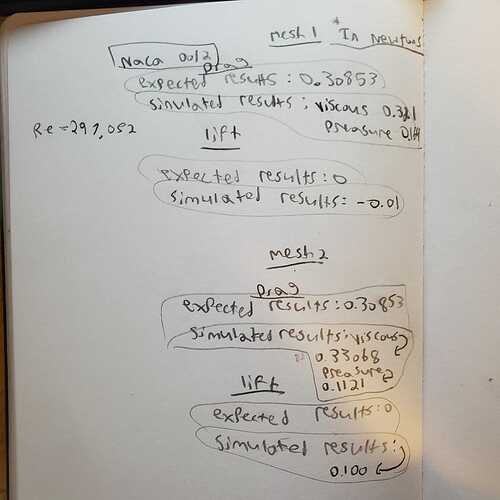 mesh 1 * In Newtons
Naca 0012
Drag
expected results: 0.30853
simulated results: viscous 0.321
preasure
Re = 297,052
lift
expected results: 0
simulated results: -0.01
mesh 2
Drag
expected results: 0.30853
simulated results: viscous
0.33068
preasure
0.1121
lift
expected results: 0
simulated results:
0.100